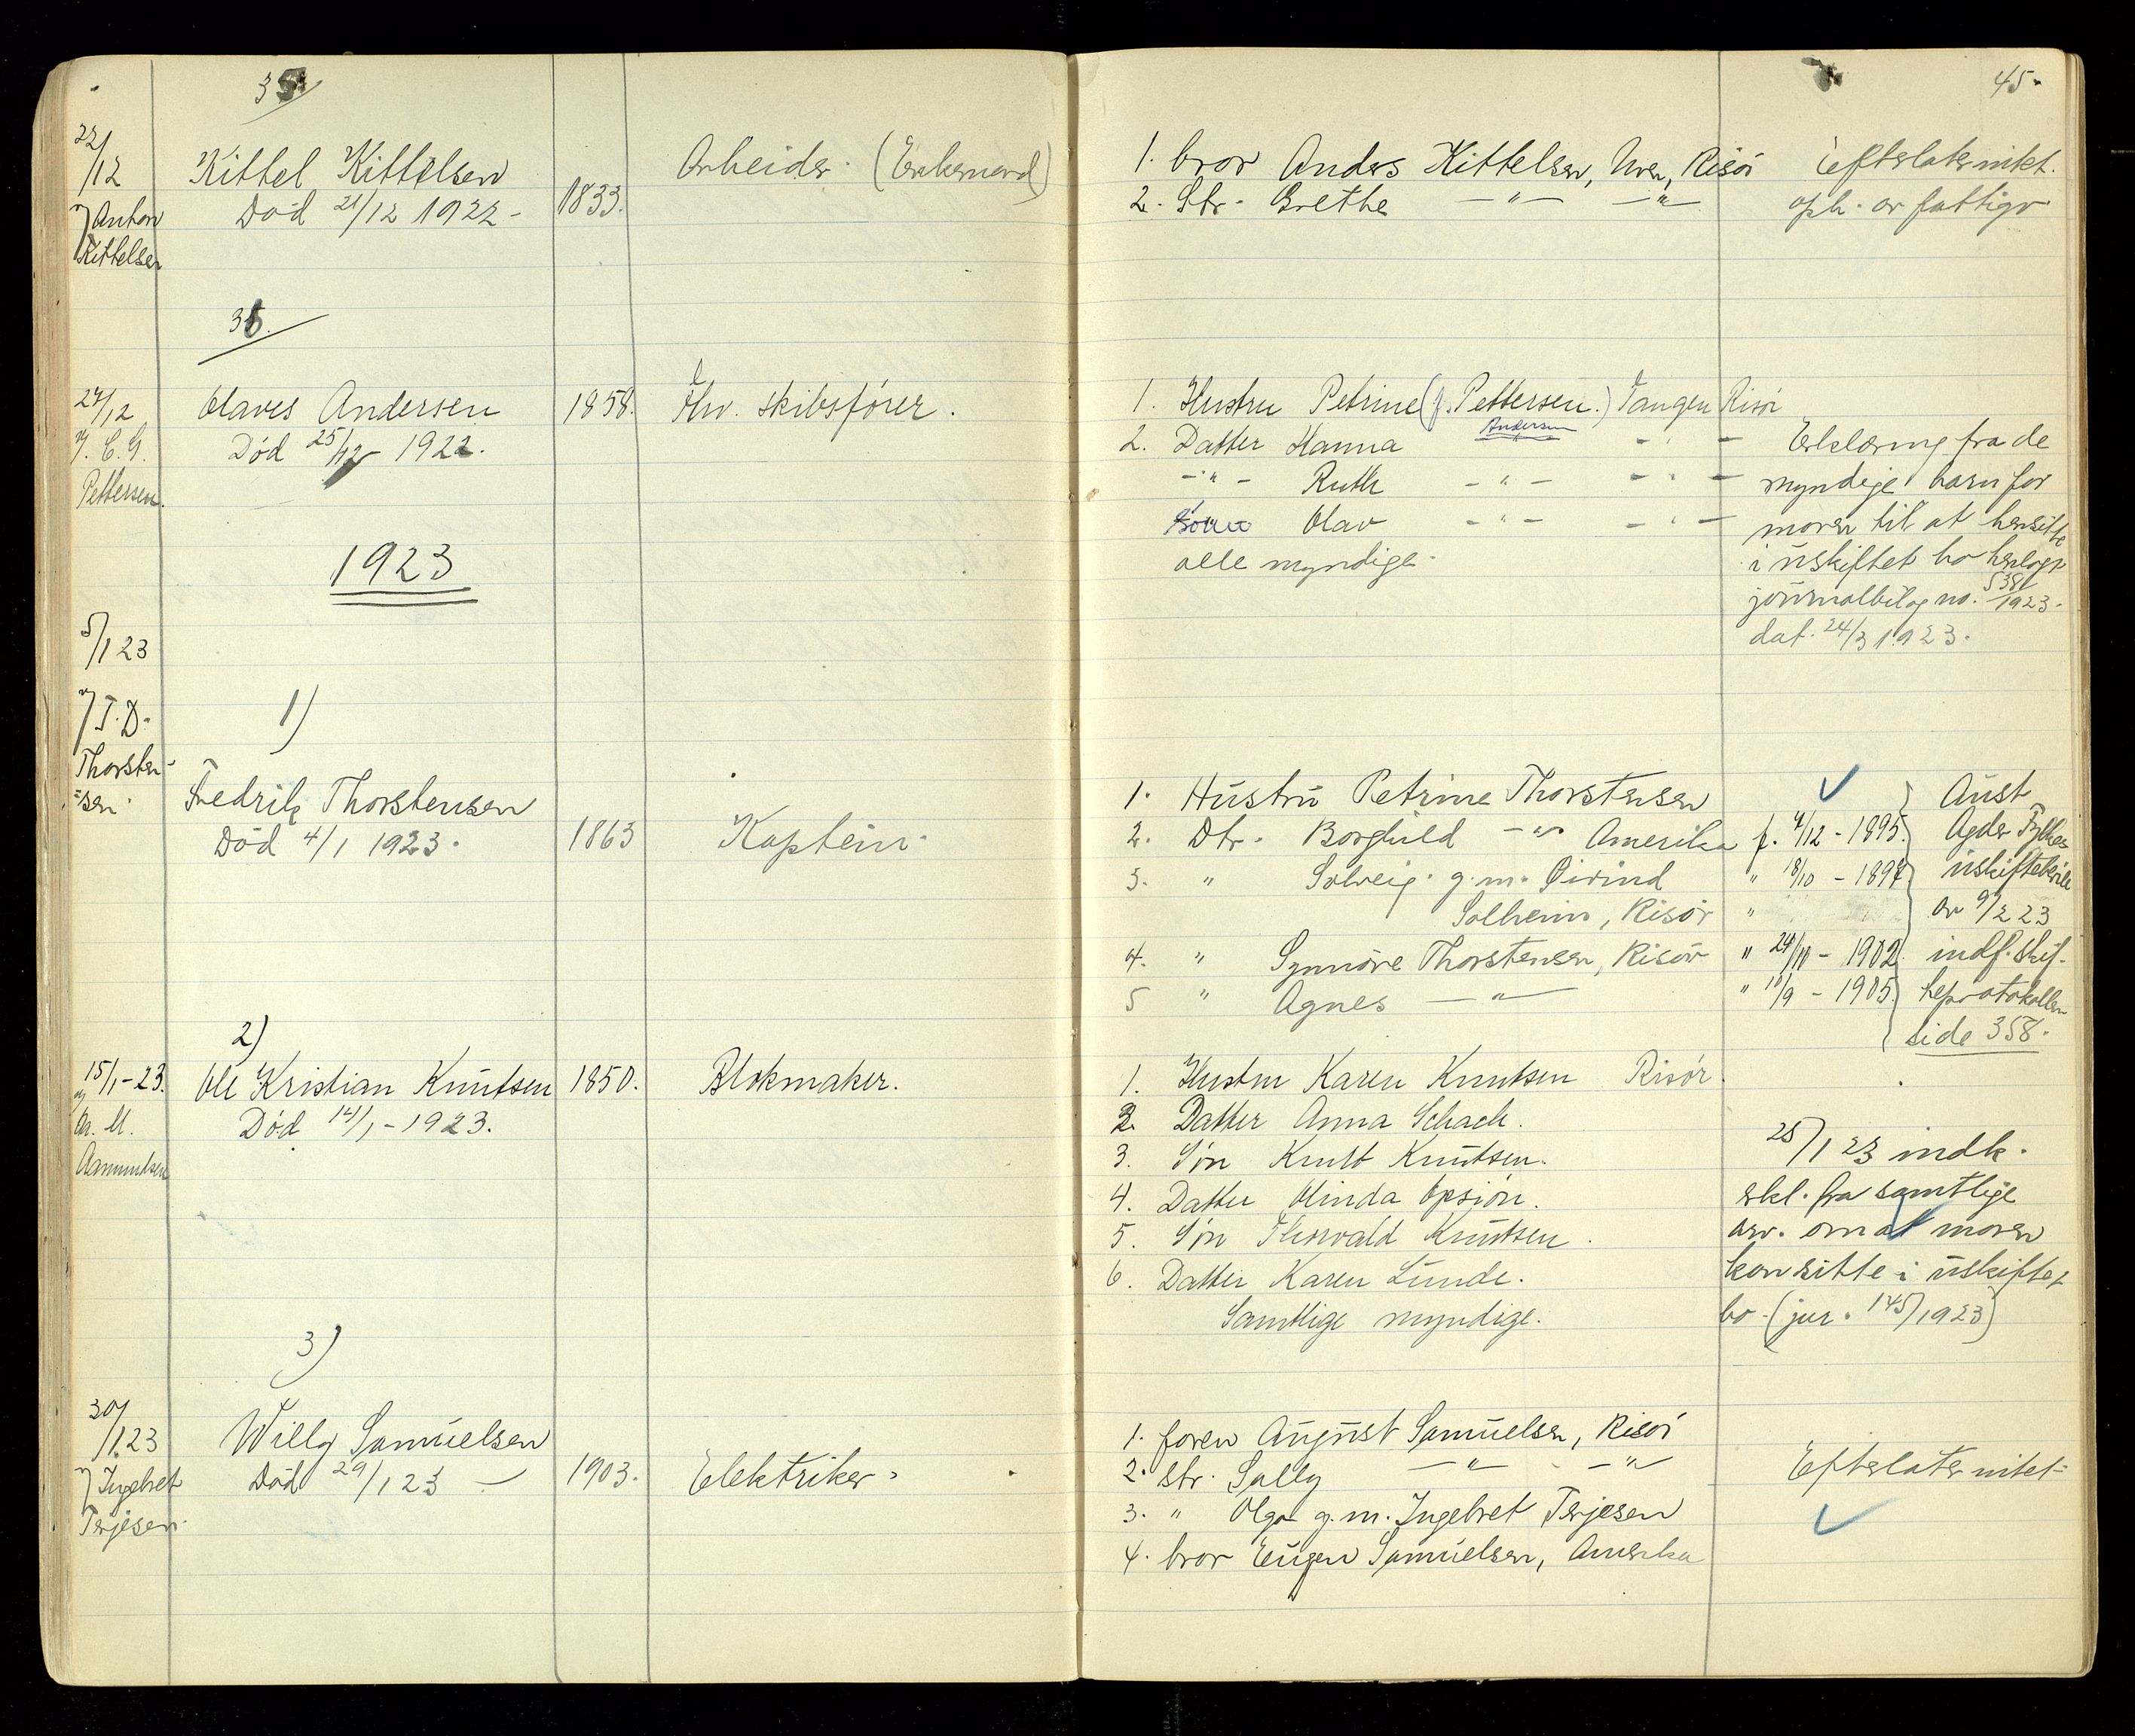 45.
35
22/12
Kittel Kittelsen
Død 21/12 1922 -
1833.
Arbeider. (Enkemand)
v/ Anton
Kittelsen
1. bror Anders Kittelsen, Uren, Risør
2. Str. Grethe —"— —"—
Efterlater intet.
oph. av fattigv.
36.
27/12
v/ C. G.
Pettersen.
Olaves Andersen
Død 25/12 1922.
1858.
Fhv. skibsfører.
1. Hustru Petrine (f. Pettersen.) Tangen Risør
2. Datter Hanna Andersen - " -
- " - Ruth - " - - " -
Sønn Olav - " - - " -
alle myndige.
Erklæring fra de
myndige barn for
moren til at hensitte
i uskiftet bo henlagt
journalbilag no. 538/1923.
dat. 24/3 1923.
1923
5/1 23
v/ T. D.
Thorsten-
sen.
1)
Fredrik Thorstensen
Død 4/1 1923.
1863
Kaptein.
1. Hustru Petrine Thorstensen
2. Dtr. Borghild —"— Amerika f. 4/12 - 1895.
3. " Solveig. g.m. Øivind " 18/10 - 1897
Solheim, Risør "
4. " Synnøve Thorstensen, Risør " 24/10 - 1902.
5 " Agnes —"— " 18/9 - 1905.
Aust
Agder Fylkes
uskiftebevill
av 9/2 23
indf. skif-
teprotokollen
side 358.
2)
15/1-23.
v/
Aa. M.
Aamundsen
Ole Kristian Knutsen
Død 14/1 - 1923.
1850.
Blokmaker.
1. Hustru Karen Knutsen Risør.
2. Datter Anna Schach.
3. Søn Knut Knutsen.
4. Datter Olinda Opsiøn.
5. Søn Thorvald Knutsen.
6. Datter Karen Lunde.
Samtlige myndige.
25/1 23 indk.
erkl. fra samtlige
arv. om at moren
kan sitte i uskiftet
bo. (jur. 145/1923)
3)
30/1.23
v/ Ingebret
Terjesen.
Willy Samuelsen
Død 29/1 23 —
1903.
Elektriker.
1. faren August Samuelsen, Risør
2. str. Sally —"— —"—
3. " Olga g.m. Ingebret Terjesen
4. bror Eugen Samuelsen, Amerika
Efterlater intet.